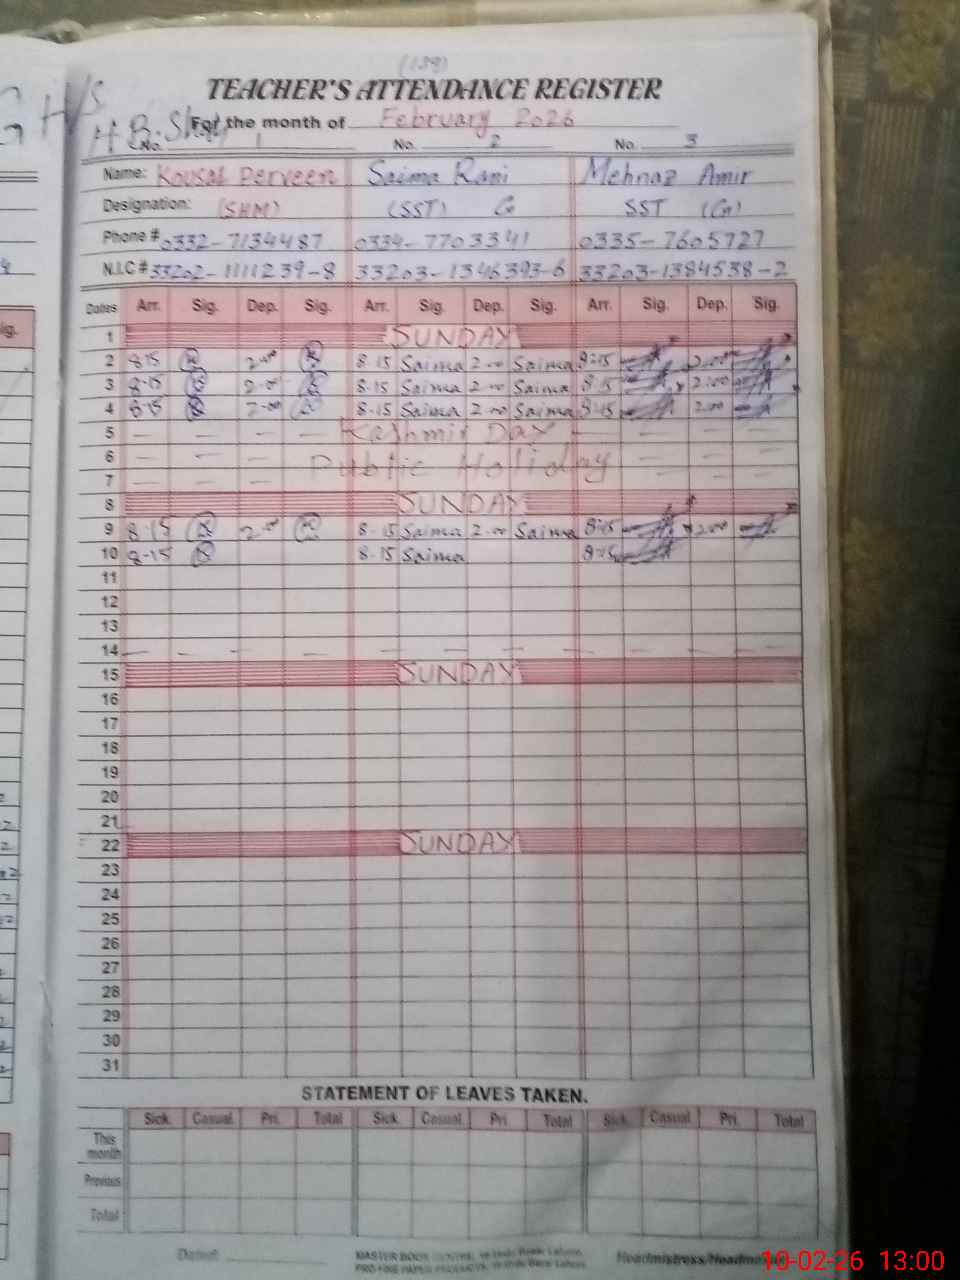 (139)
TEACHER'S ATTENDANCE REGISTER
For the month of February 2026
No. 1 No. 2 No. 3
Name: Kousar Perveen Saima Rani Mehnaz Amir
Designation: (SHM) (SST) G SST (G)
Phone # 0332-7134487 0334-7703341 0335-7605727
N.I.C # 33202-1111239-8 33203-1346393-6 33203-1384538-2
Dates Arr. Sig. Dep. Sig. Arr. Sig. Dep. Sig. Arr. Sig. Dep. Sig.
1 SUNDAY
2 8-15 2-00 8-15 Saima 2-00 Saima 8:15 2:00
3 8-15 2-00 8-15 Saima 2-00 Saima 8:15 2:00
4 8-15 2-00 8-15 Saima 2-00 Saima 8:15 2:00
5 — — — Kashmir Day — — — —
6 — — — — Public Holiday — — —
7 — — — — — —
8 SUNDAY
9 8-15 2-00 8-15 Saima 2-00 Saima 8:15 2:00
10 8-15 8-15 Saima 8:15
11
12
13
14 — — — — — — — — — — — —
15 SUNDAY
16
17
18
19
20
21
22 SUNDAY
23
24
25
26
27
28
29
30
31
STATEMENT OF LEAVES TAKEN.
Sick. Casual. Pri. Total Sick. Casual. Pri. Total Sick. Casual. Pri. Total
This month
Previous
Total
Dated:
Headmistress/Headm
10-02-26 13:00